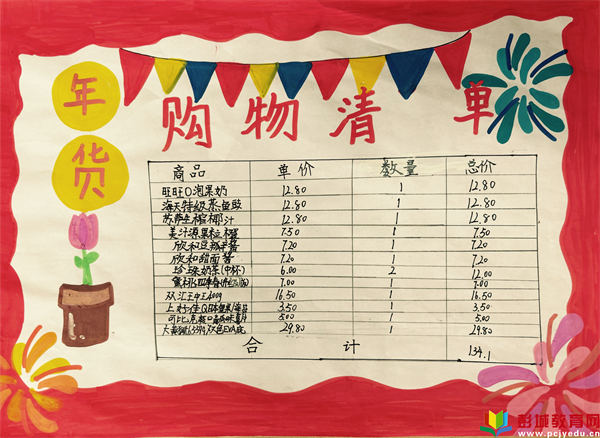 年货
购物清单
商品 单价 数量 总价
旺旺O泡果奶 12.80 1 12.80
海天特级蒸鱼豉 12.80 1 12.80
苏萨生榨椰汁 12.80 1 12.80
美汁源果粒橙 7.50 1 7.50
欣和豆瓣酱 7.20 1 7.20
欣和甜面酱 7.20 1 7.20
珍珠奶茶(中杯) 6.00 2 12.00
7.00 1 7.00
双汇王中王400g 16.50 1 16.50
上好佳 3.50 1 3.50
可比克 5.00 1 5.00
29.80 1 29.80
合计 134.1
彭城教育网
www.pcjyedu.cn